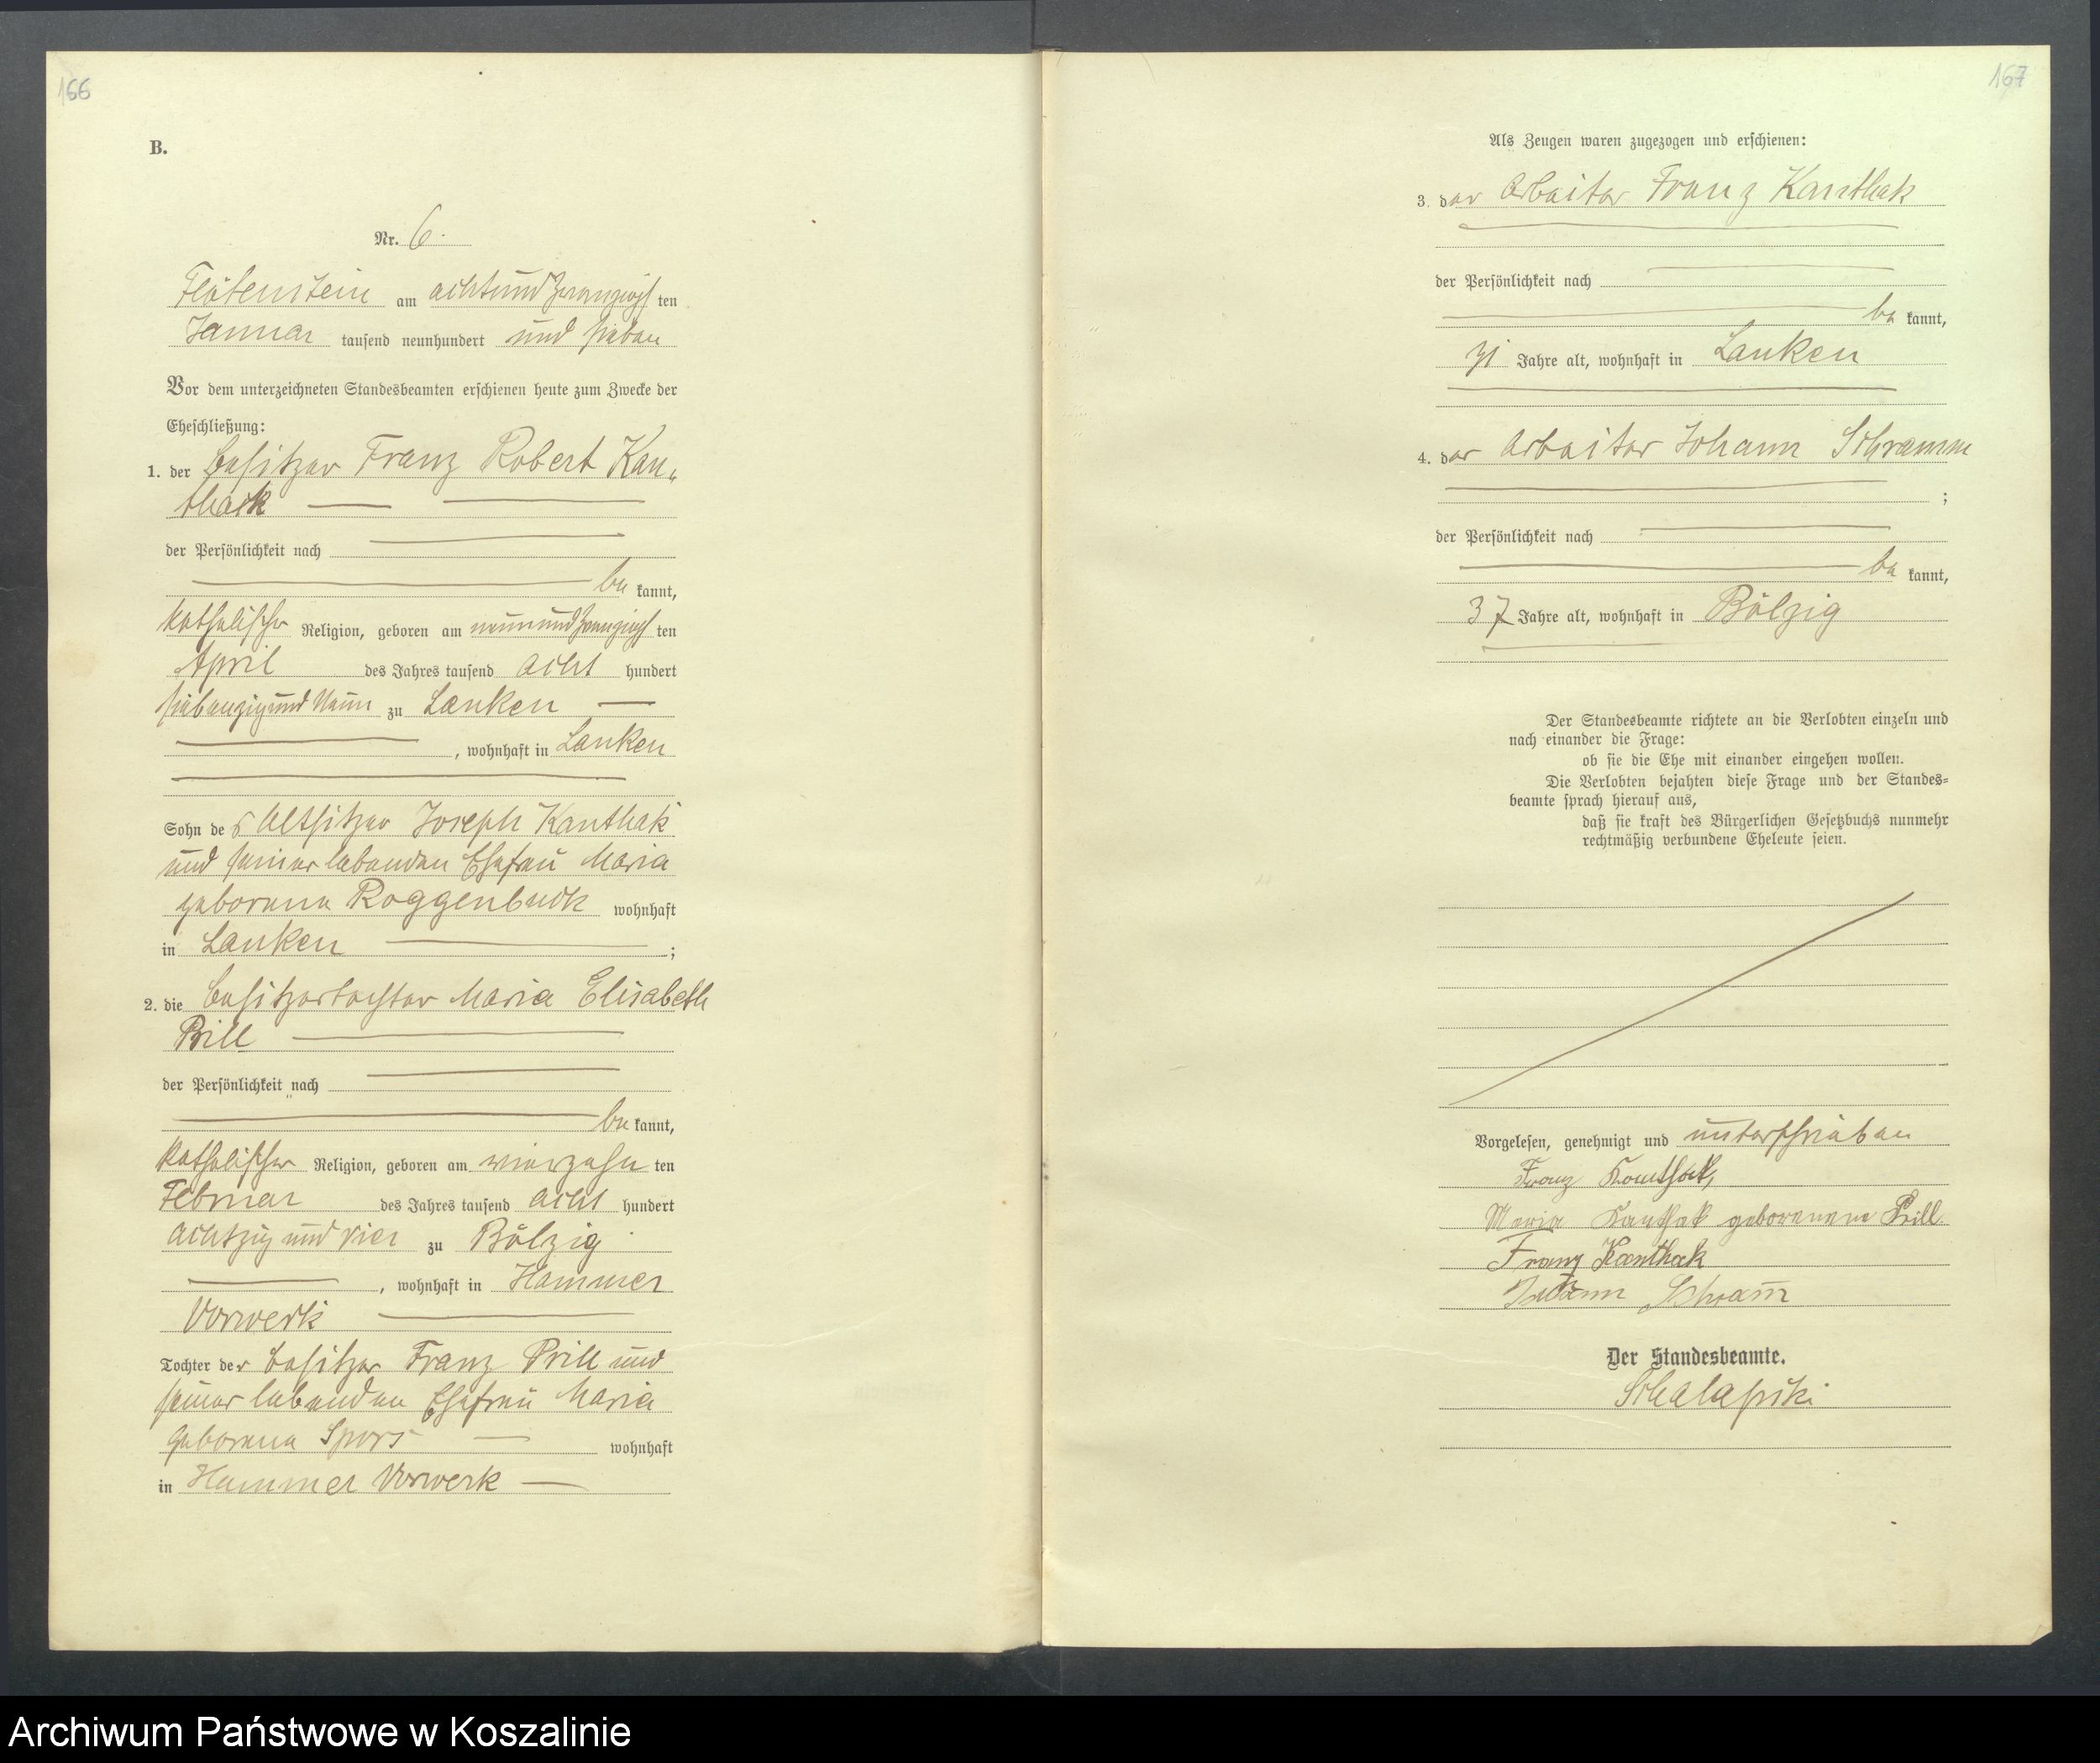 166
B.
Nr. 6.
Flötenstein am achtundzwanzigsten
Januar tausend neunhundert und sieben
Vor dem unterzeichneten Standesbeamten erschienen heute zum Zwecke der
Eheschließung:
1. der Besitzer Franz Robert Kan„
thack
der Persönlichkeit nach
be kannt,
katholischer Religion, geboren am neunundzwanzigsten
April des Jahres tausend acht hundert
siebenzig und Neun zu Lanken
, wohnhaft in Lanken
Sohn des Altsitzer Joseph Kanthak
und seiner lebenden Ehefrau Maria
geborene Roggenbuck wohnhaft
in Lanken ;
2. die Besitzertochter Maria Elisabeth
Prill
der Persönlichkeit nach
be kannt,
katholischer Religion, geboren am vierzehn ten
Februar des Jahres tausend acht hundert
achtzig und vier zu Bölzig
, wohnhaft in Hammer
Vorwerk
Tochter der Besitzer Franz Prill und
seiner lebenden Ehefrau Maria
geborene Spors wohnhaft
in Hammer Vorwerk
167
Als Zeugen waren zugezogen und erschienen:
3. der Arbeiter Franz Kanthak
der Persönlichkeit nach
be kannt,
Jahre alt, wohnhaft in Lanken
4. der Arbeiter Johann Schramm
;
der Persönlichkeit nach
be kannt,
37 Jahre alt, wohnhaft in Bölzig
Der Standesbeamte richtete an die Verlobten einzeln und
nach einander die Frage:
ob sie die Ehe mit einander eingehen wollen.
Die Verlobten bejahten diese Frage und der Standes-
beamte sprach hierauf aus,
daß sie kraft des Bürgerlichen Gesetzbuchs nunmehr
rechtmäßig verbundene Eheleute seien.
Vorgelesen, genehmigt und unterschrieben
Franz Kanthak,
Maria Kanthak geborenene Prill
Franz Kanthak
Johann Schram̅
Der Standesbeamte.
Schalapski
Archiwum Państwowe w Koszalinie